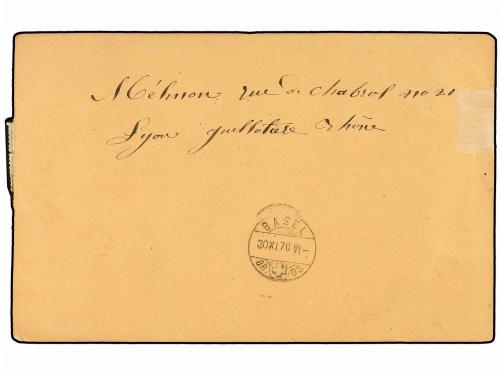 Mélinon rue de Chabrol no 21
Lyon guillotière Rhône
BASEL
30 XI 70 VI-
BR DS